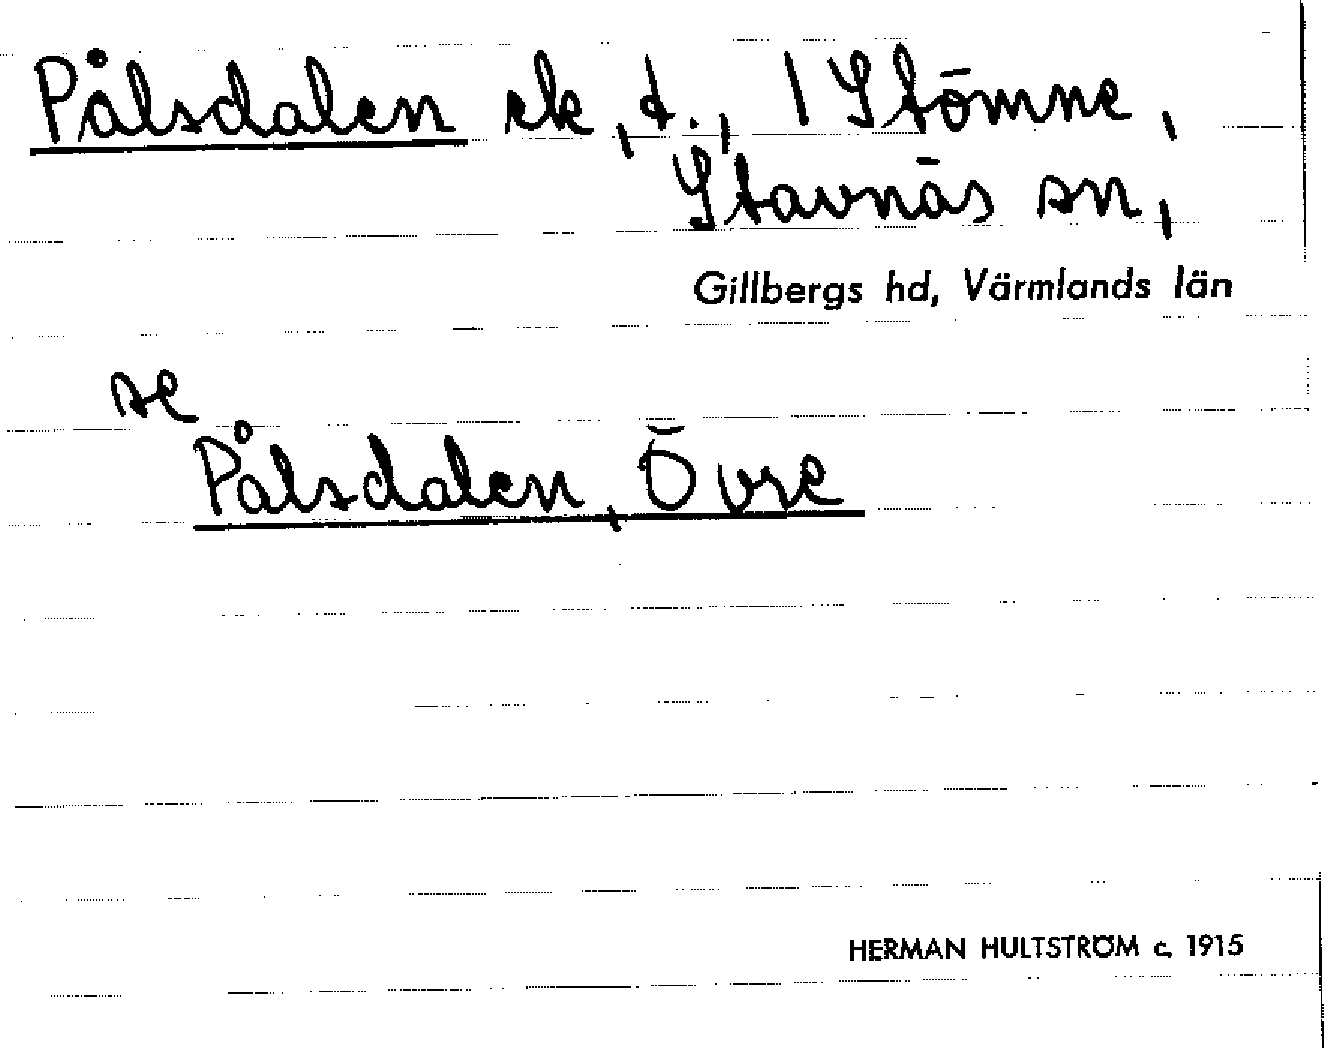 Pålsdalen elk, t., 1 Stömne,
Stavnäs sn,
Gillbergs hd, Värmlands län
se
Pålsdalen, Övre
HERMAN HULTSTRÖM c. 1915